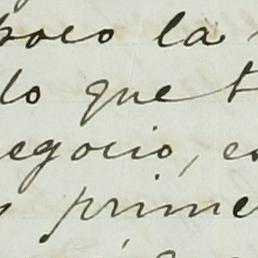 poco la
do que t
negocio, es
y prime